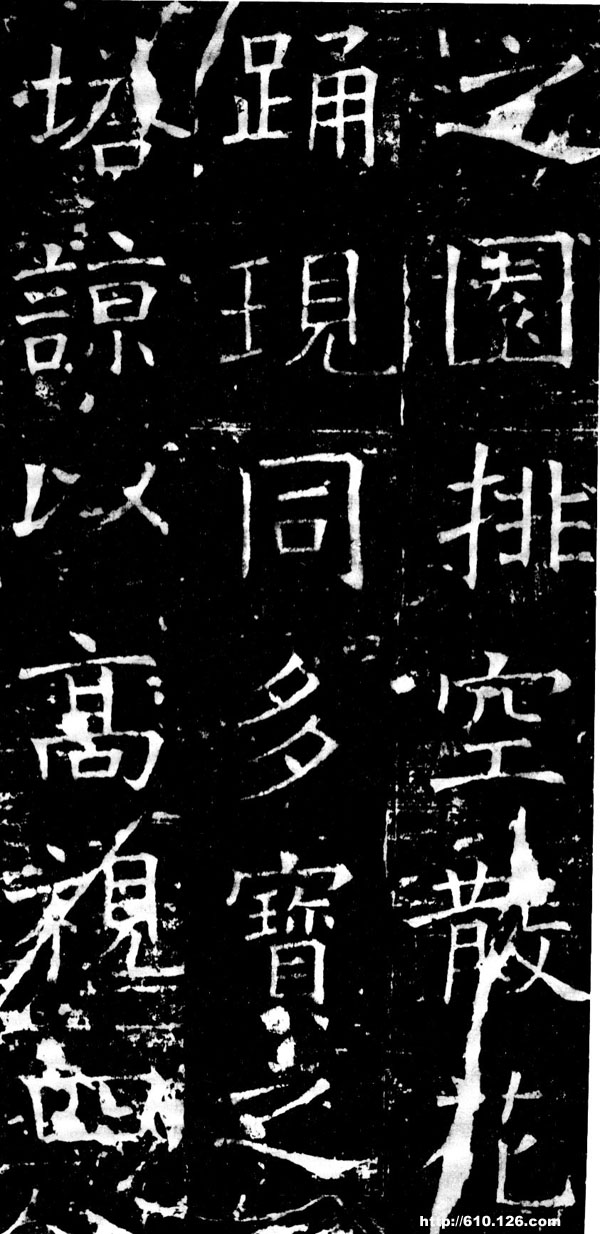 之園排空散花
踊現同多寶之
塔諒以高視四
http://610.126.com